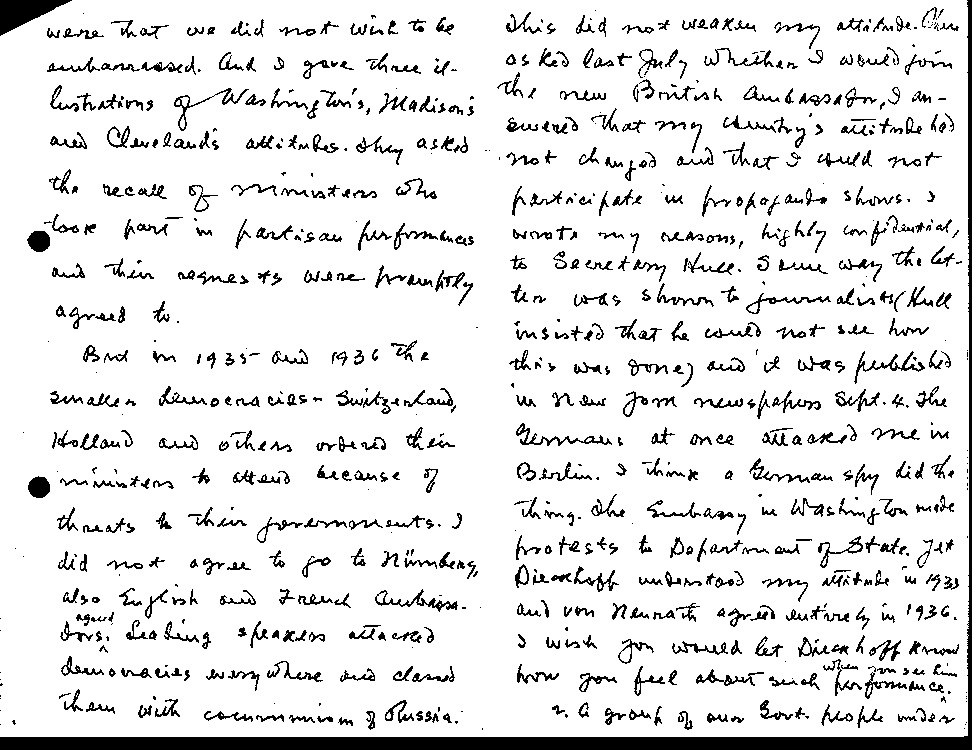 were that we did not wish to be
embarrassed. And I gave three il-
lustrations of Washington's, Madison's
and Cleveland's attitudes. They asked
the recall of ministers who
took part in partisan performances
and their requests were promptly
agreed to.
But in 1935 and 1936 the
smaller democracies - Switzerland,
Holland and others ordered their
ministers to attend because of
threats to their governments. I
did not agree to go to Nürnberg,
also English and French Ambassa-
agreed
dors. Leading speakers attacked
democracies everywhere and classed
them with communism of Russia.
This did not weaken my attitude. When
asked last July whether I would join
the new British Ambassador, I an-
swered that my country's attitude had
not changed and that I could not
participate in propaganda shows. I
wrote my reasons, highly confidential,
to Secretary Hull. Some way the let-
ter was shown to journalists (Hull
insisted that he could not see how
this was done) and it was published
in New York newspapers Sept. 4. The
Germans at once attacked me in
Berlin. I think a German spy did the
thing. The Embassy in Washington made
protests to Department of State. Yet
Dieckhoff understood my attitude in 1935
and von Neurath agreed entirely in 1936.
I wish you would let Dieckhoff know
when you see him
how you feel about such performance.
2. A group of our Govt. people under